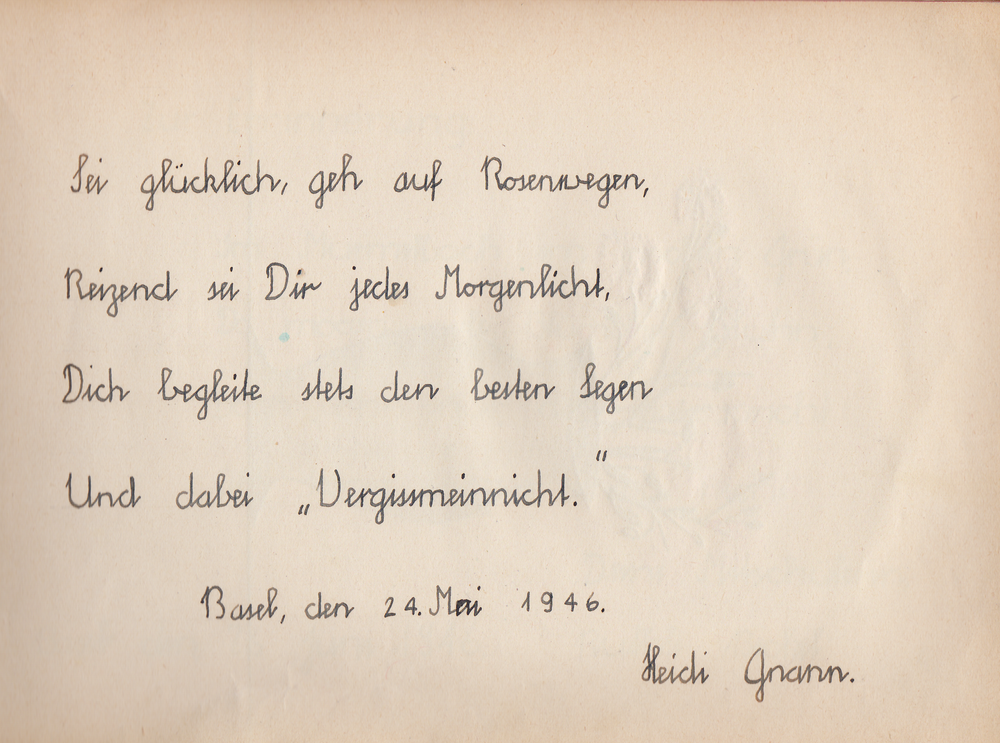 Sei glücklich, geh auf Rosenwegen,
Reizend sei Dir jedes Morgenlicht,
Dich begleite stets den besten Segen
Und dabei „Vergissmeinnicht."
Basel, den 24. Mai 1946.
Heidi Gnann.